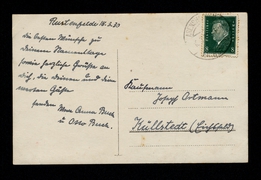 die besten Wünsche zu
deinem Namenstage
sowie herzliche Grüße an
dich, die Deinen und die
werten Gäste
senden Anna Buch
u. Otto Buch.
Kaufmann
Josef Ortmann
Küllstedt (Eichsfeld)